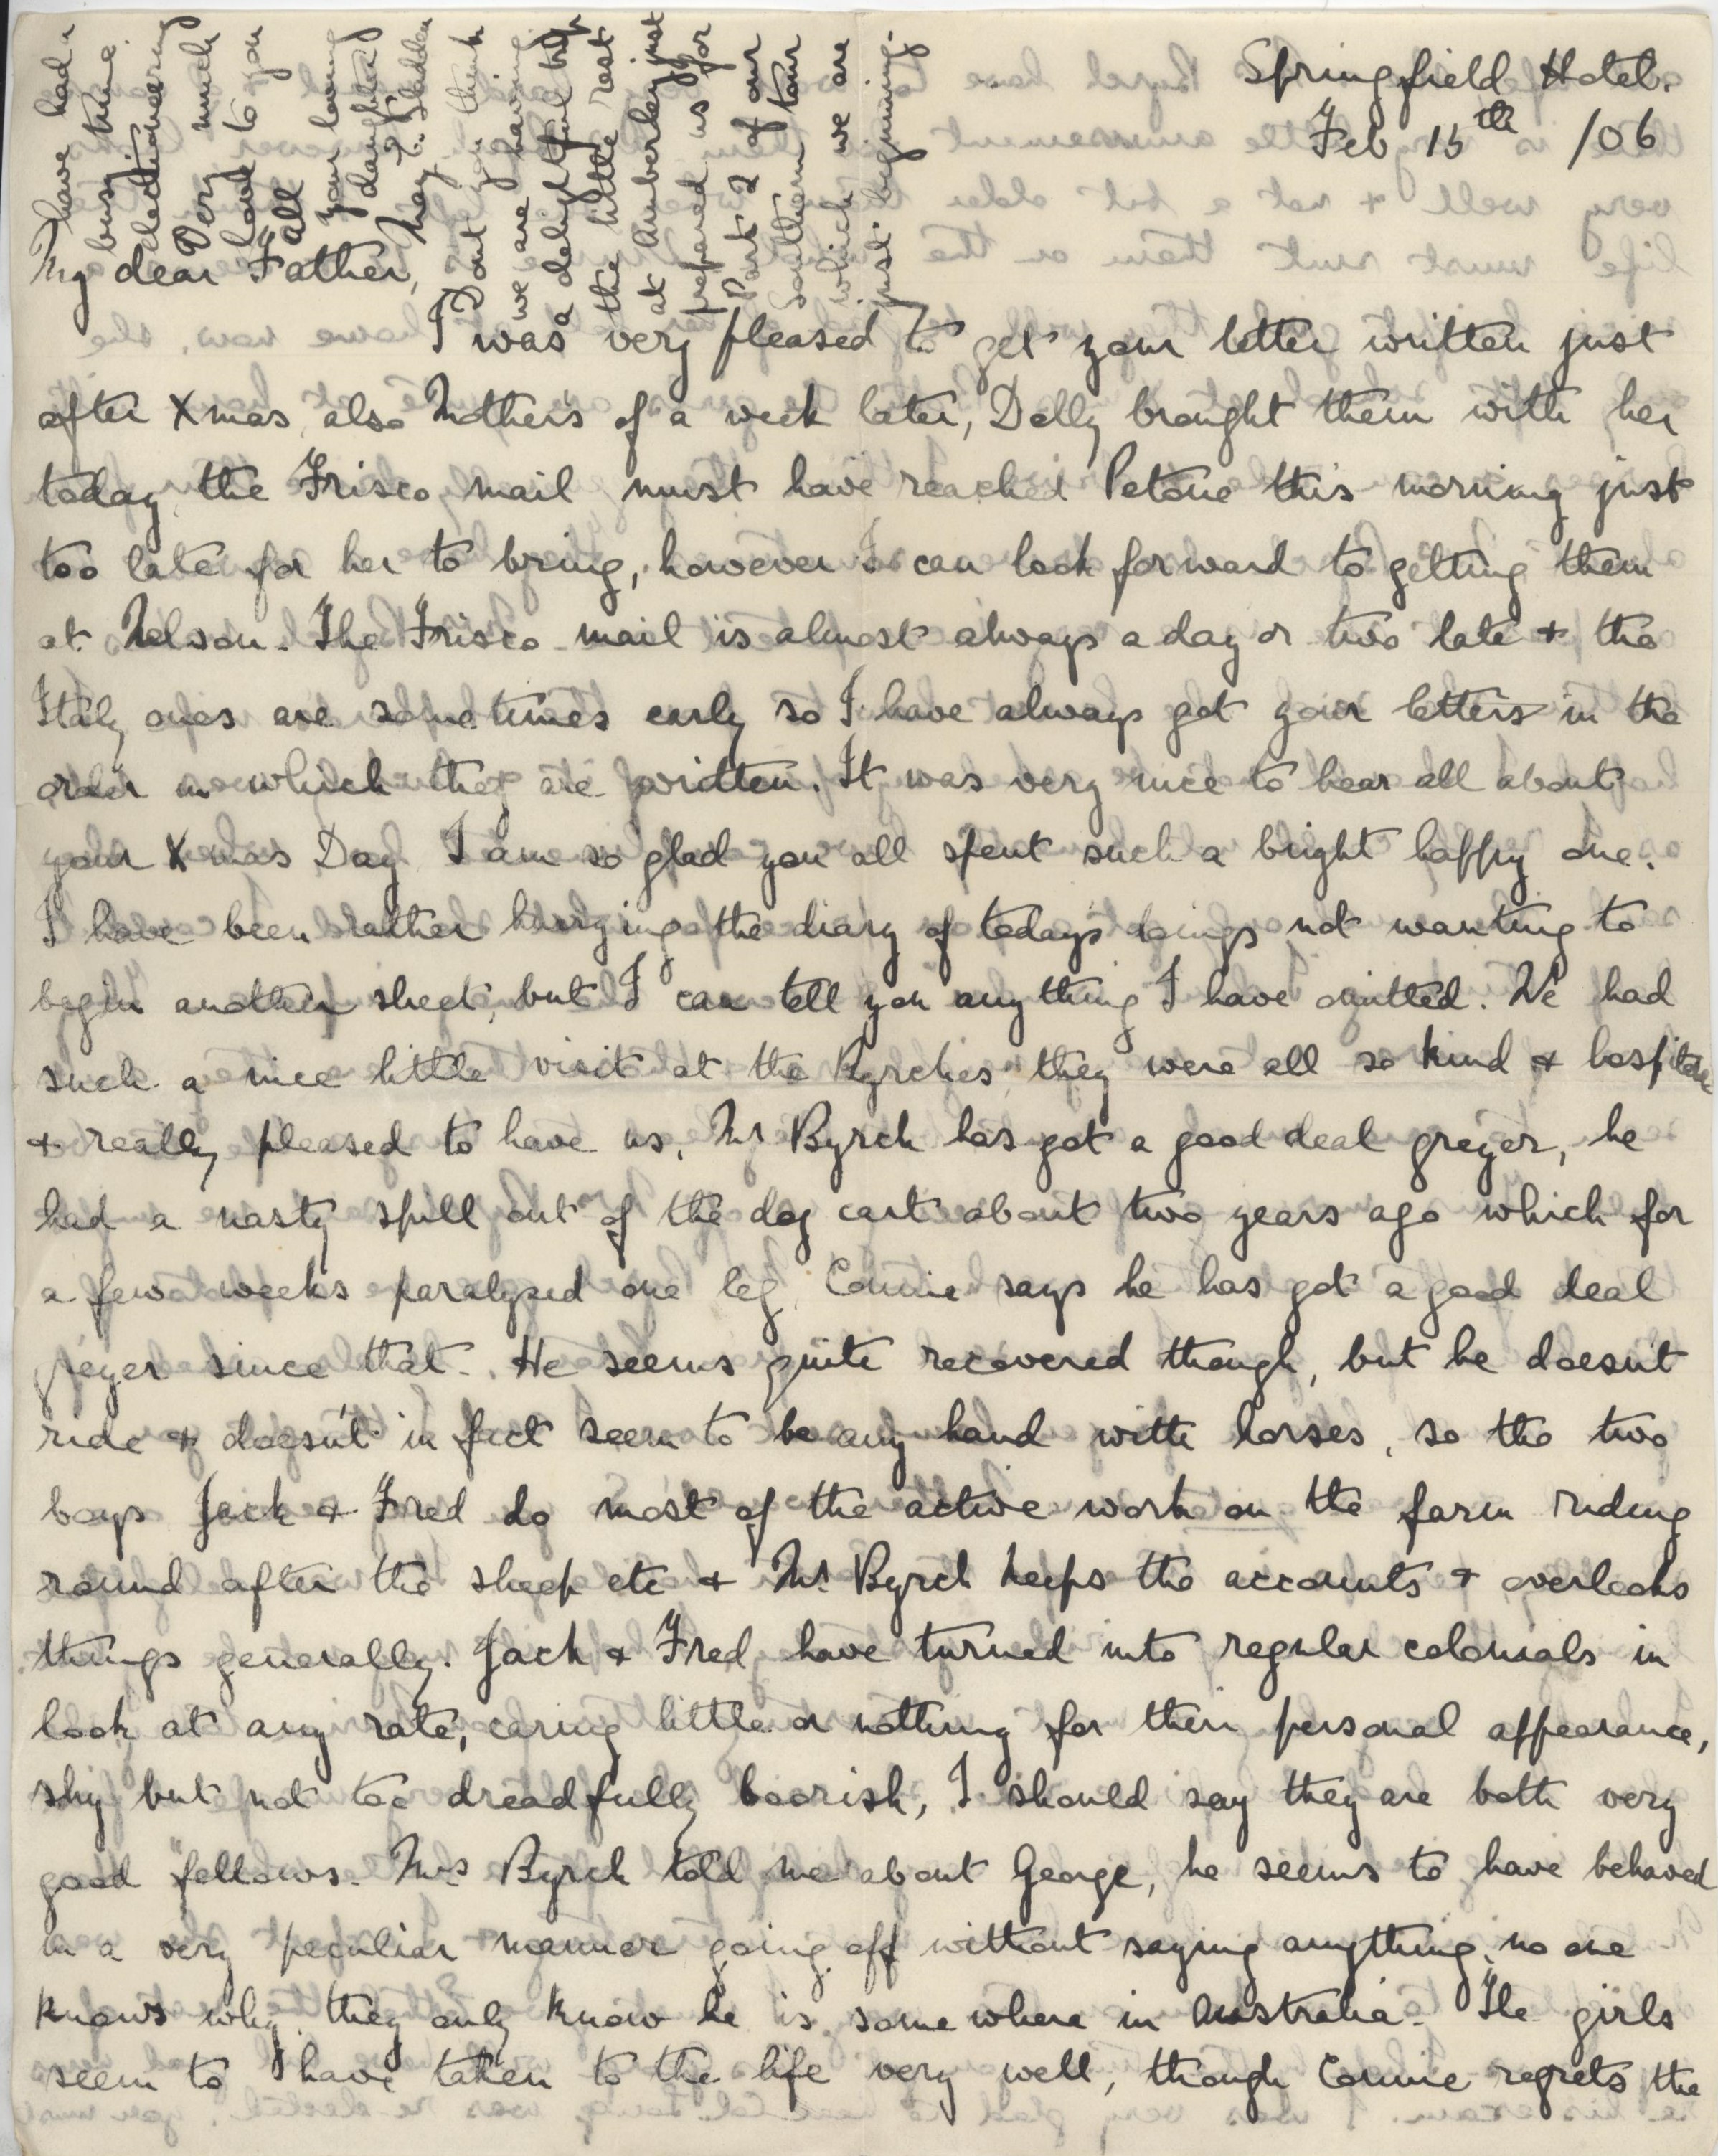 Springfield Hotel.
Feb 15th /06
My dear Father,
I was very pleased to get your letter written just
after Xmas also Mother's of a week later, Dolly brought them with her
today, the Frisco mail must have reached Petone this morning just
too late for her to bring, however I can look forward to getting them
at Nelson. The Frisco mail is almost always a day or two late & the
Italy ones are sometimes early so I have always got your letters in the
order in which they are written. It was very nice to hear all about
your Xmas Day I am so glad you all spent such a bright happy one.
I have been rather hurrying the diary of todays doings not wanting to
begin another sheet, but I can tell you anything I have omitted. We had
such a nice little visit at the Byrches, they were all so kind & hospitable
& really pleased to have us, Mr Byrch has got a good deal greyer, he
had a nasty spill out of the dog cart about two years ago which for
a few weeks paralysed one leg, Connie says he has got a good deal
greyer since that. He seems quite recovered though, but he doesn't
ride & doesn't in fact seem to be any hand with horses, so the two
boys Jack & Fred do most of the active work on the farm riding
round after the sheep etc & Mr Byrch keeps the accounts & overlooks
things generally. Jack & Fred have turned into regular colonials in
look at any rate, caring little or nothing for their personal appearance,
shy but not too dreadfully boorish, I should say they are both very
good fellows. Mrs Byrch told me about George, he seems to have behaved
in a very peculiar manner going off without saying anything, no one
knows why, they only know he is somewhere in Australia. The girls
seem to have taken to the life very well, though Connie regrets the
have had a
busy time
electioneering
Very much
love to you
all
your loving
daughter
May L.
Dont you think
we are having
a delightful trip
the little rest
at Amberley just
prepared us for
Part 2 of our
southern tour
which we are
just beginning.